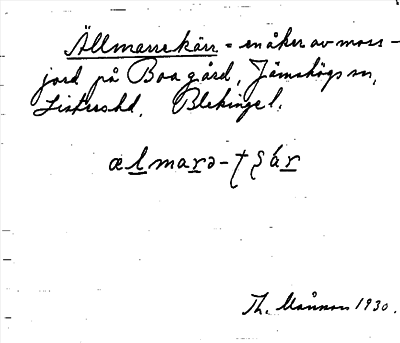 Ällmarrekärr = en åker av moss-
jord på Boa gård, Jämshögs sn,
Listers hd, Blekinge l.
ælmarə-tʂár
Th. Månsson 1930.